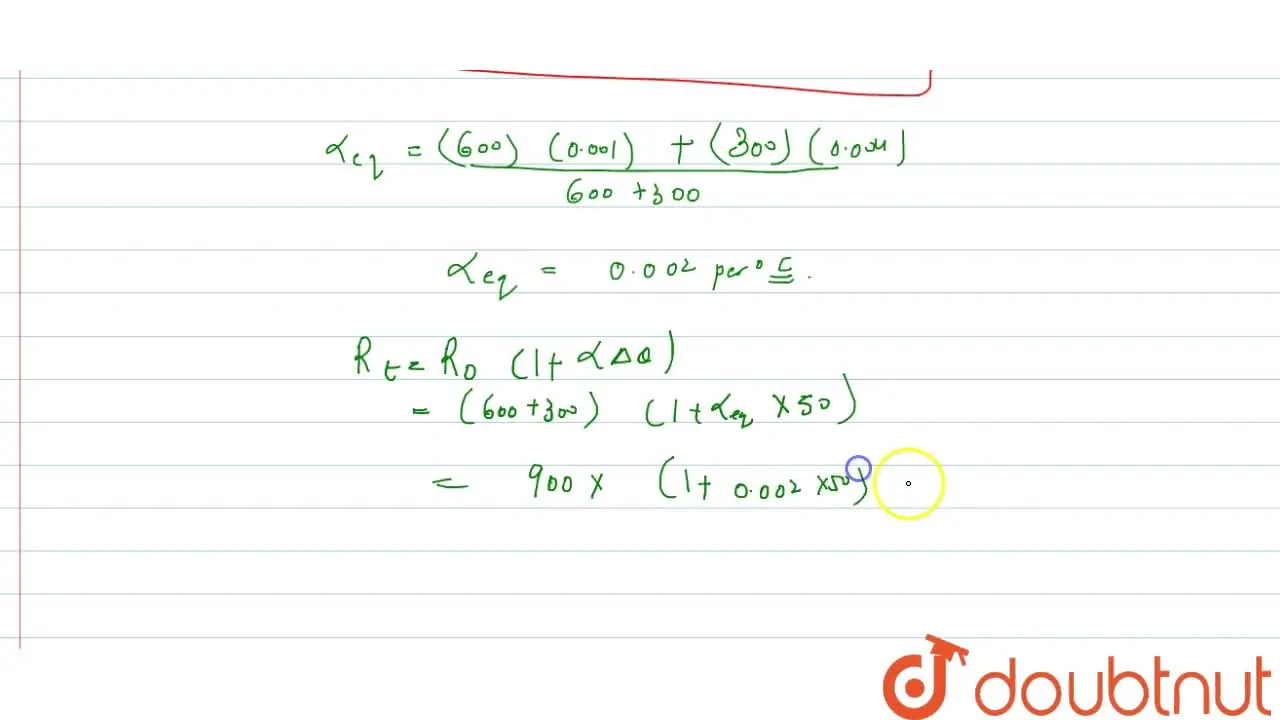 αeq = (600) (0.001) + (300) (0.004)
600 + 300
αeq = 0.002 per° C.
Rt = R0 (1 + αΔθ)
= (600 + 300) (1 + αeq × 50)
= 900 × (1 + 0.002 × 50)
doubtnut